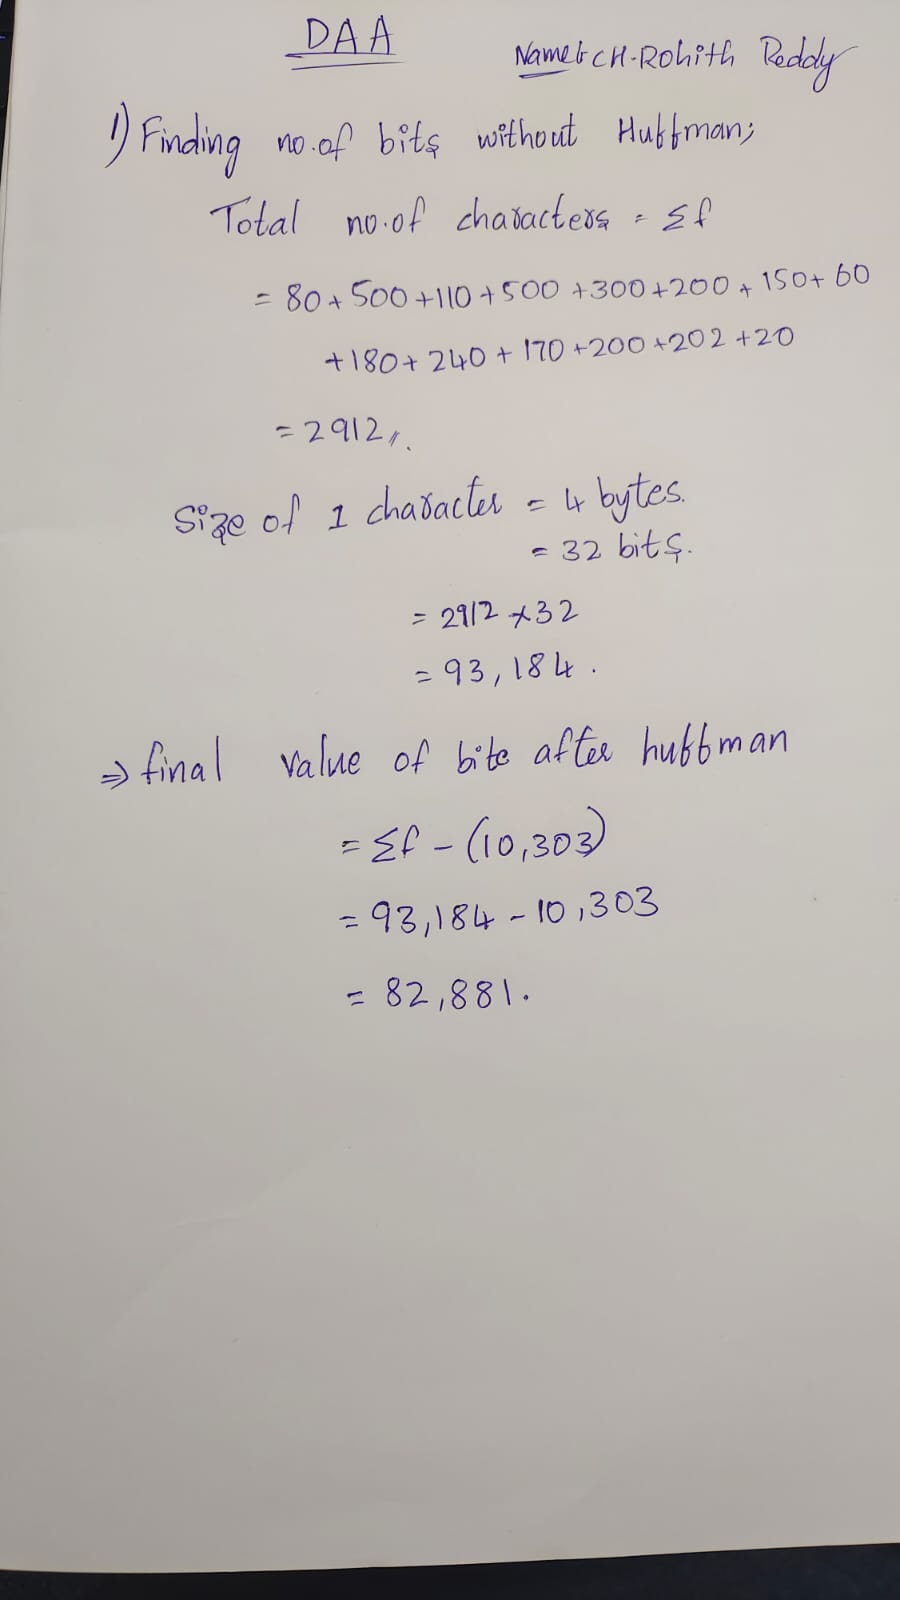 DAA
Name:- CH-Rohith Reddy
1) Finding no.of bits without Huffman;
Total no.of characters = Σf
= 80+500+110+500+300+200+150+60
+180+240+170+200+202+20
= 2912//.
Size of 1 character = 4 bytes.
= 32 bits.
= 2912 × 32
= 93,184.
⇒ final value of bits after huffman
= Σf - (10,303)
= 93,184 - 10,303
= 82,881.